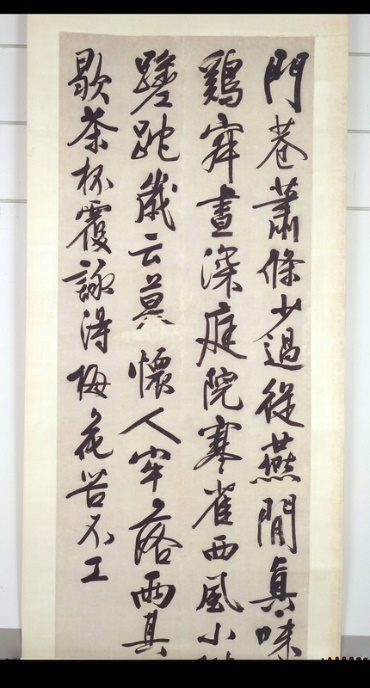 門巷蕭條少過從燕閒真味
鷄晝深庭院寒雀西風小
蹉跎歲云莫懷人牢落雨其
歇茶杯覆詠得梅花苦不工